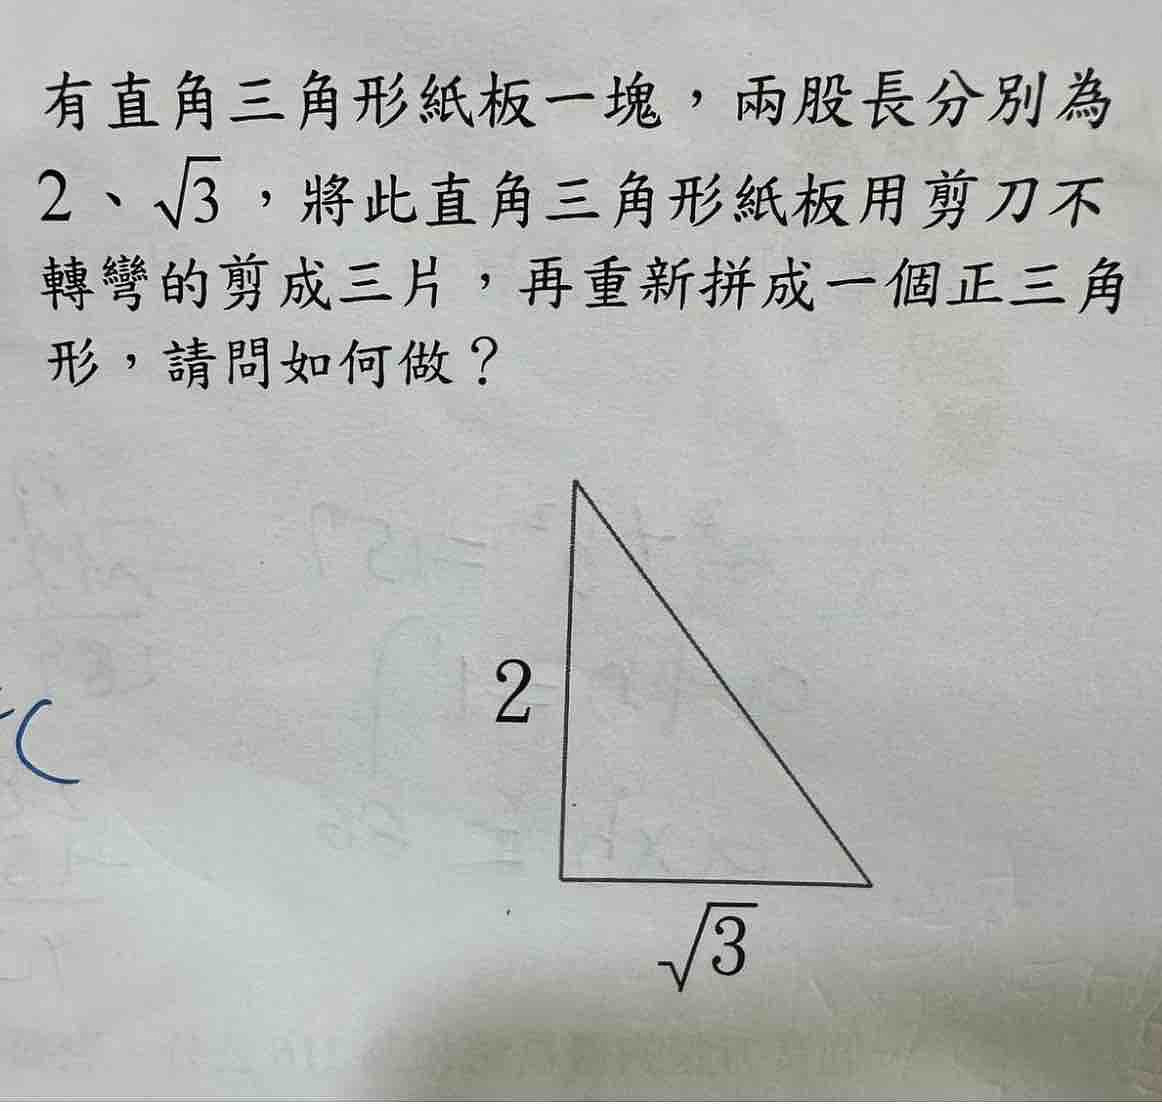 有直角三角形紙板一塊，兩股長分別為
2、√3，將此直角三角形紙板用剪刀不
轉彎的剪成三片，再重新拼成一個正三角
形，請問如何做？
2
√3